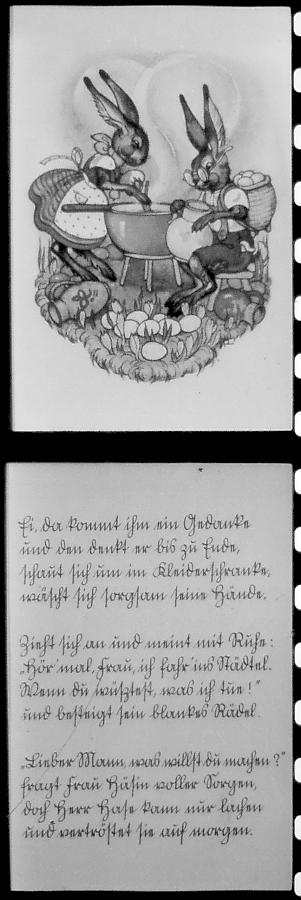 Ei, da kommt ihm ein Gedanke
und den denkt er bis zu Ende,
schaut sich um im Kleiderschranke,
wäscht sich sorgsam seine Hände.
Zieht sich an und meint mit Ruhe:
„Hör' mal, Frau, ich fahr' ins Städtel.
Wenn du wüsztest, was ich tue!"
und besteigt sein blankes Rädel.
„Lieber Mann, was willst du machen?"
fragt Frau Häsin voller Sorgen,
doch Herr Hase kann nur lachen
und vertröstet sie auf morgen.